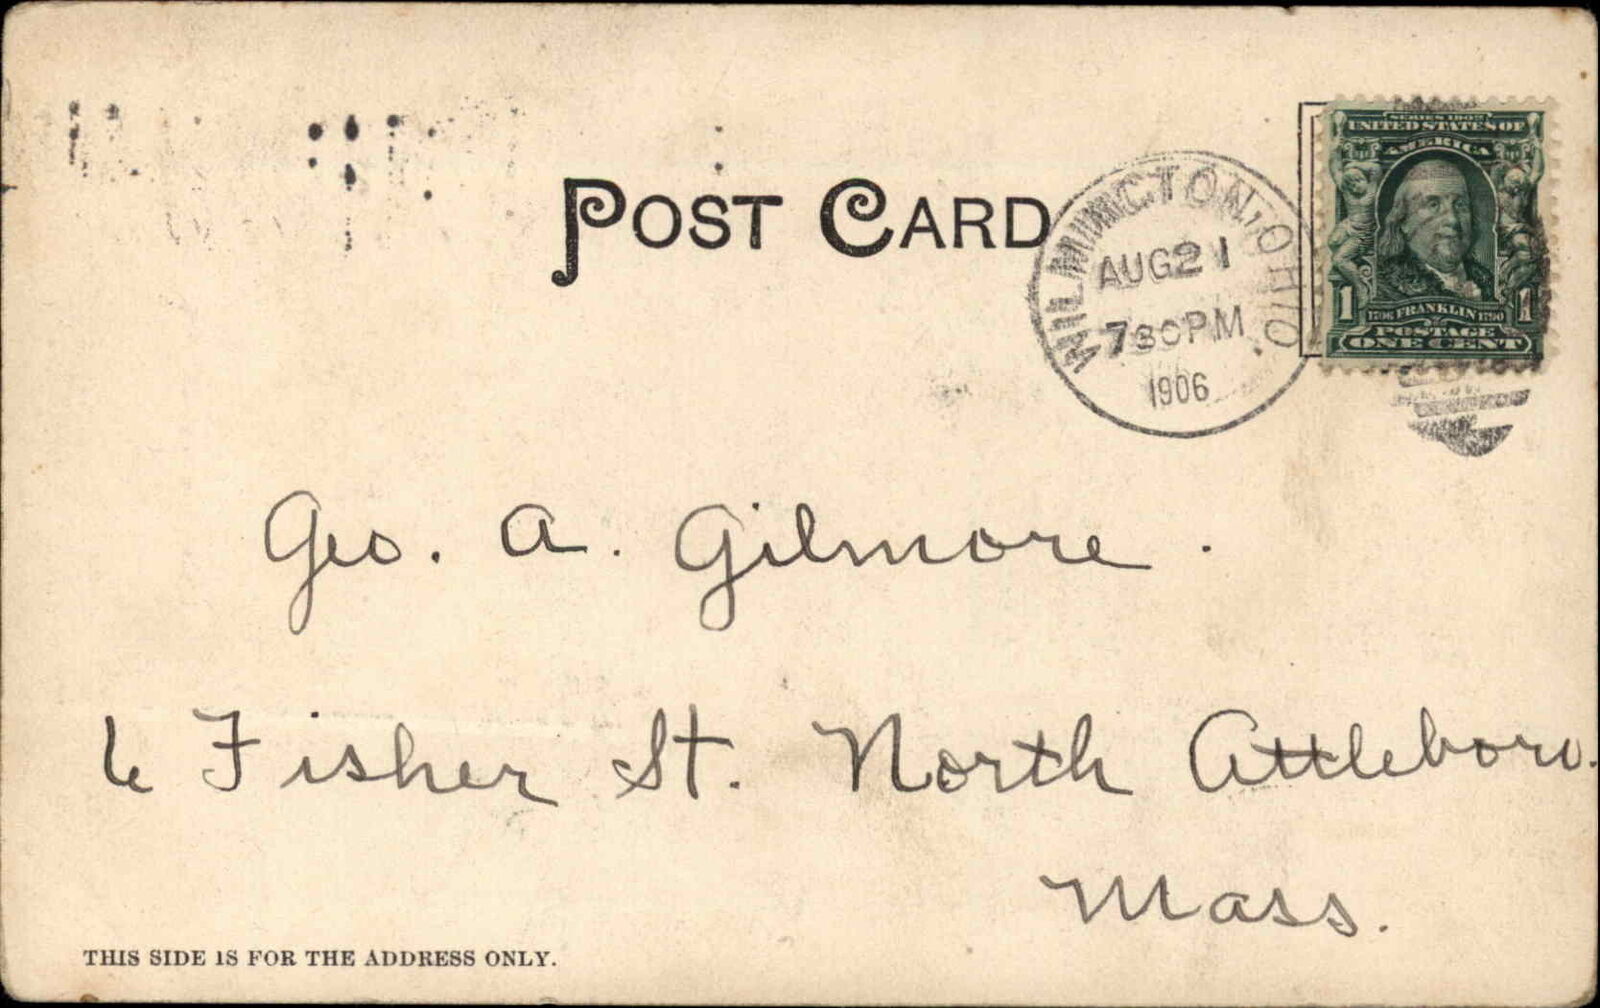 POST CARD
WILMINGTON, OHIO
AUG 21
730PM
1906
SERIES 1902
UNITED STATES OF
AMERICA
1 1
1706 FRANKLIN 1790
POSTAGE
ONE CENT
Geo. A. Gilmore.
6 Fisher St. North Attleboro.
Mass.
THIS SIDE IS FOR THE ADDRESS ONLY.